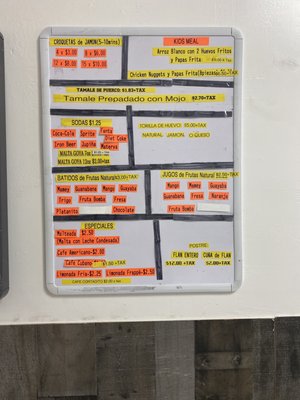 CROQUETAS de JAMON(5-10mins)
4 x $3.00 8 x $6.00
12 x $8.00 15 x $10.00
KIDS MEAL
Arroz Blanco con 2 Huevos Fritos
y Papas Frita
Chicken Nuggets y Papas Frita
TAMALE DE PUERCO: $1.83+TAX
Tamale Prepadado con Mojo $2.70+TAX
SODAS $1.25
Coca-Cola Sprite Fanta Diet Coke
Iron Beer Jupiña Materva
MALTA GOYA 7oz
MALTA GOYA 12oz $2.00+tax
TORILLA DE HUEVO! $5.00+TAX
NATURAL JAMON O QUESO
BATIDOS de Frutas Natural
Mamey Guanabana Mango Guayaba
Trigo Fruta Bomba Fresa Piña
Platanito Chocolate
JUGOS de Frutas Natural
Mango Mamey Guayaba
Guanabana Fresa Naranja
Fruta Bomba
ESPECIALES
Malteada $2.50
(Malta con Leche Condensada)
Cafe Americano-$2.00
Cafe Cubano $1.50+TAX
Limonada Fria-$2.25 Limonada Frappe-$2.50
CAFE CORTADITO $2.00 + tax
POSTRE:
FLAN ENTERO CUÑA de FLAN
$12.00 +TAX $2.00+TAX